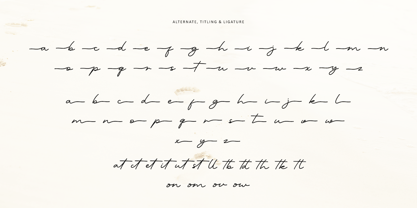 ALTERNATE, TITLING & LIGATURE
a b c d e f g h i j k l m n
o p q r s t u v w x y z
a b c d e f g h i j k l
m n o p q r s t u v w
x y z
at it et it ut st ll tb td th tk tl
on om ov ow